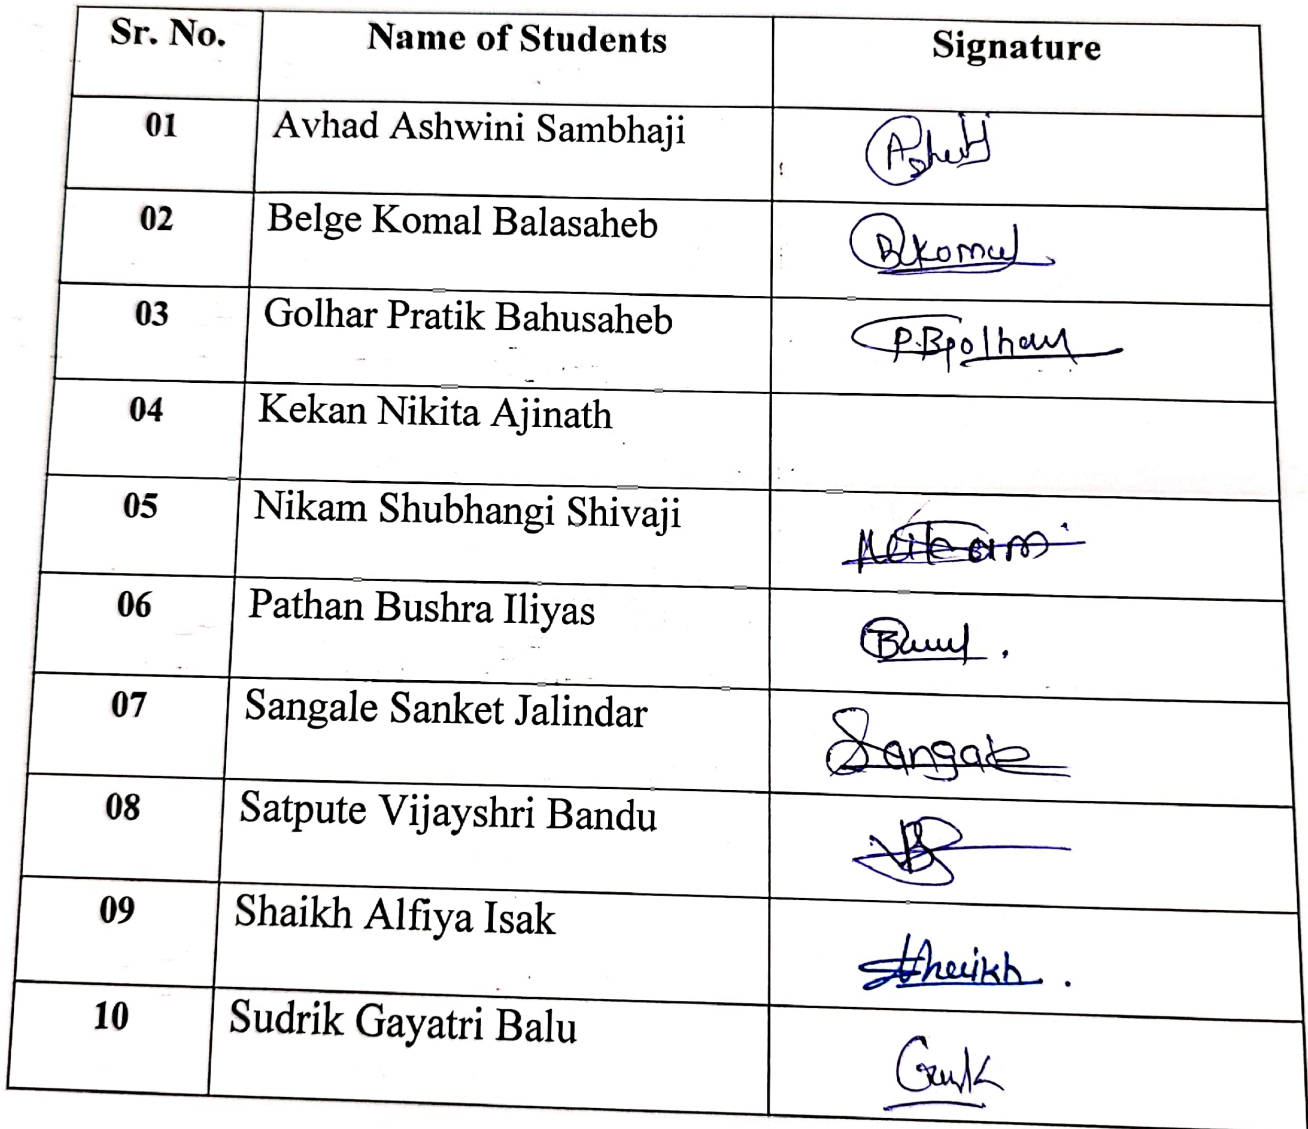 Sr. No. Name of Students Signature
01 Avhad Ashwini Sambhaji
02 Belge Komal Balasaheb B Komal
03 Golhar Pratik Bahusaheb P.B
04 Kekan Nikita Ajinath
05 Nikam Shubhangi Shivaji Nikam
06 Pathan Bushra Iliyas
07 Sangale Sanket Jalindar Sangale
08 Satpute Vijayshri Bandu
09 Shaikh Alfiya Isak Shaikh
10 Sudrik Gayatri Balu